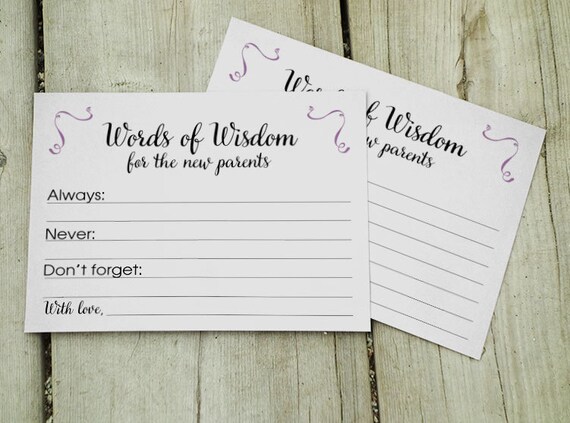 Words of Wisdom
for the new parents
Always:
Never:
Don't forget:
With love,
Wisdom
new parents